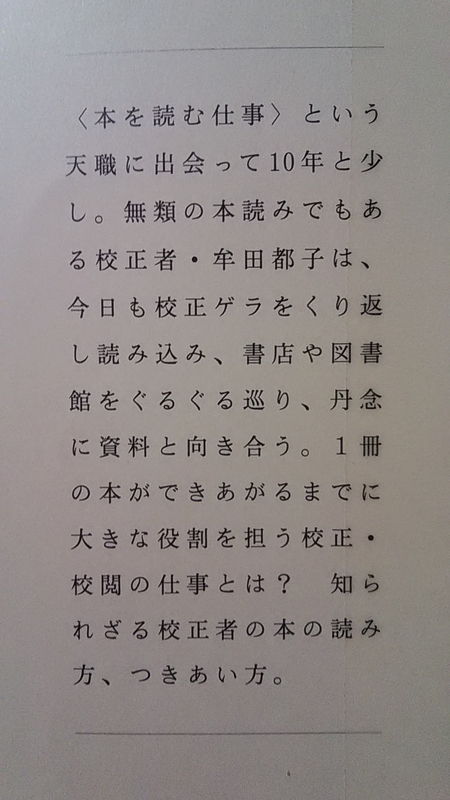 〈本を読む仕事〉という
天職に出会って10年と少
し。無類の本読みでもあ
る校正者・牟田都子は、
今日も校正ゲラをくり返
し読み込み、書店や図書
館をぐるぐる巡り、丹念
に資料と向き合う。1冊
の本ができあがるまでに
大きな役割を担う校正・
校閲の仕事とは？　知ら
れざる校正者の本の読み
方、つきあい方。